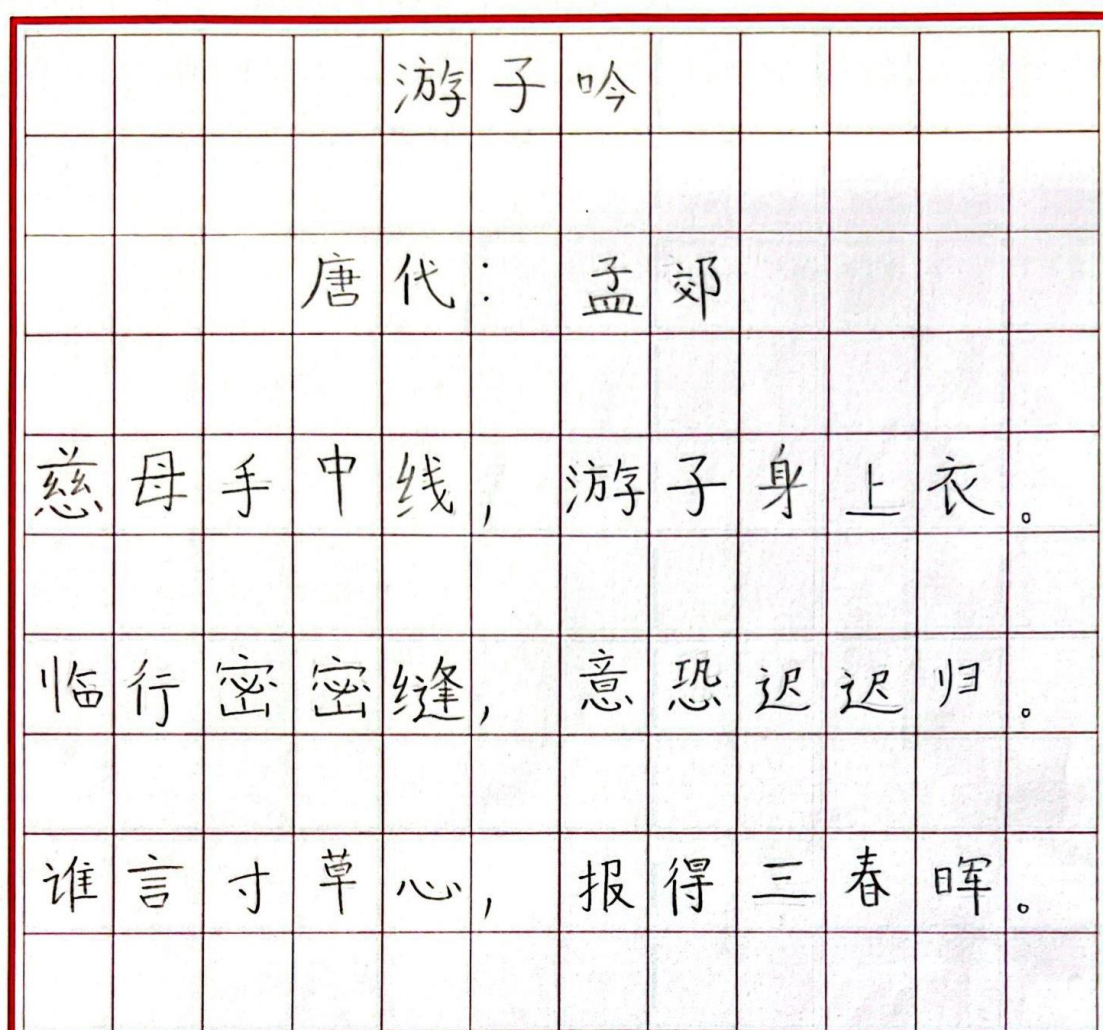 游子吟
唐代：孟郊
慈母手中线，游子身上衣。
临行密密缝，意恐迟迟归。
谁言寸草心，报得三春晖。